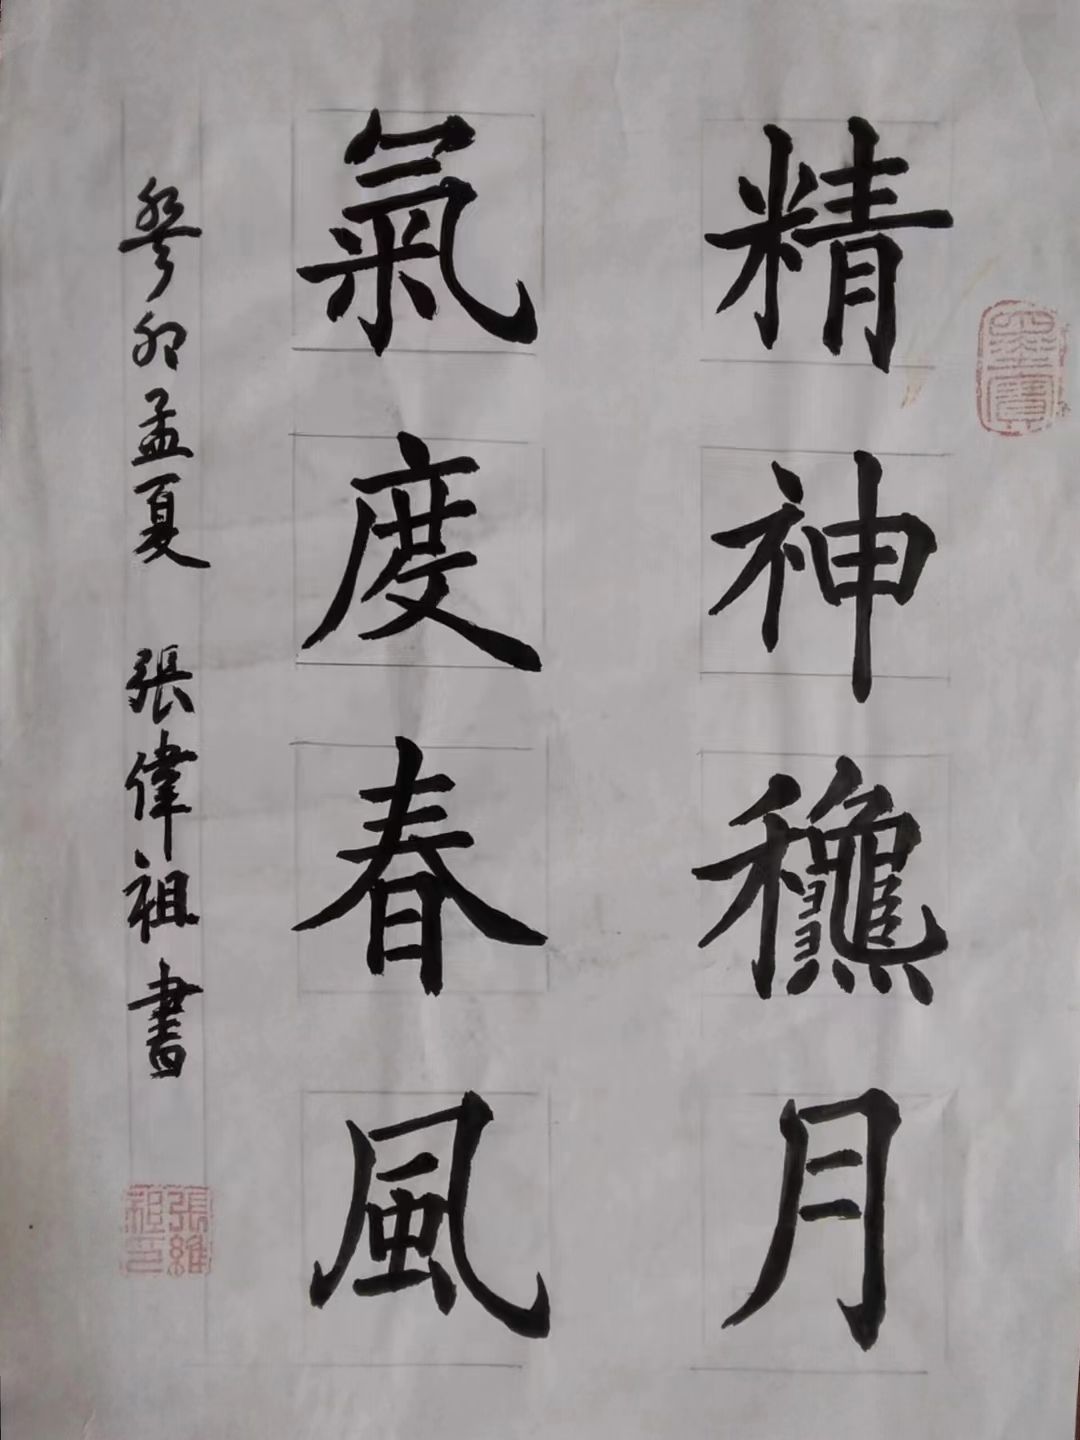 精神龝月
氣度春風
癸卯孟夏 張偉祖書
墨寶
張維祖印